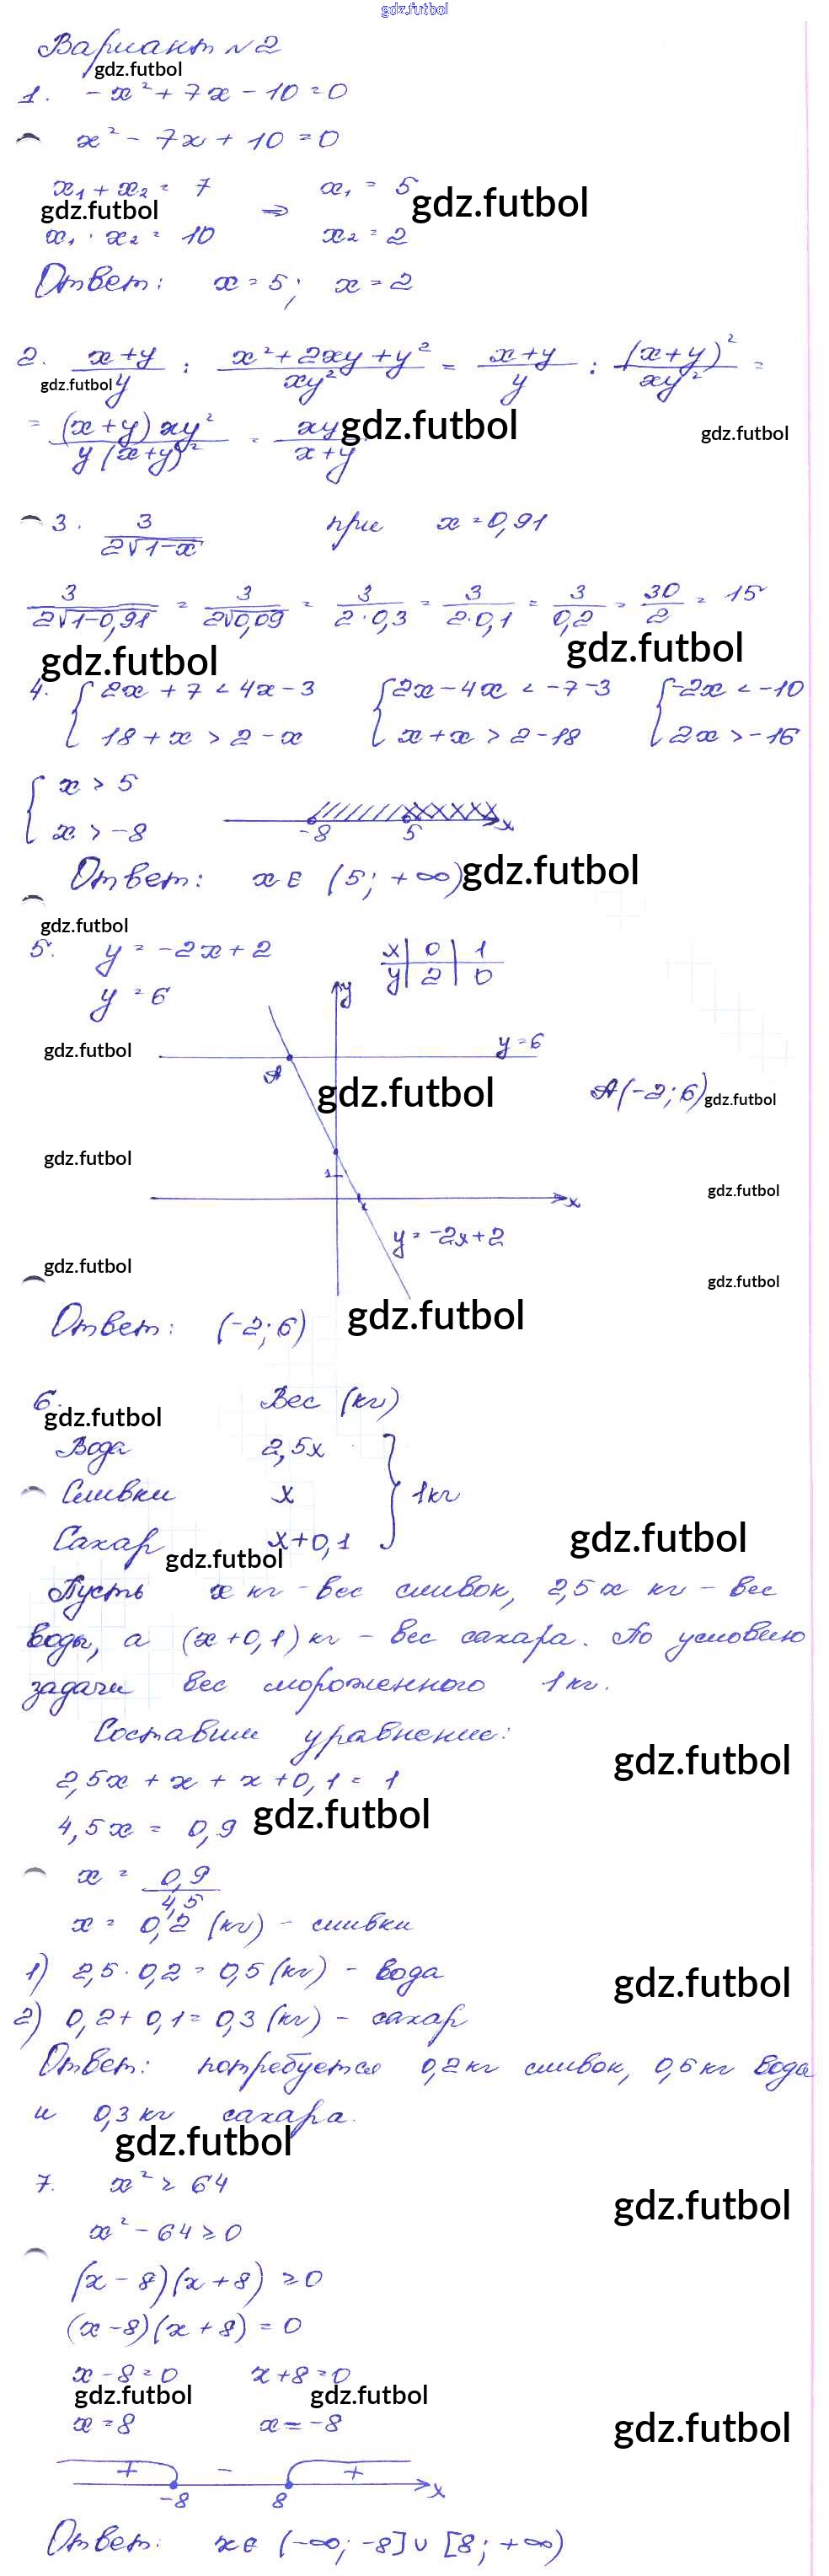 gdz.futbol
Вариант №2
gdz.futbol
1. -x² + 7x - 10 = 0
x² - 7x + 10 = 0
x₁ + x₂ = 7 ⇒ x₁ = 5
gdz.futbol gdz.futbol
x₁ · x₂ = 10 x₂ = 2
Ответ: x = 5; x = 2
2. (x+y)/y : (x² + 2xy + y²)/(xy²) = (x+y)/y : (x+y)²/(xy²) =
gdz.futbol
= (x+y)xy²/(y(x+y)²) = xy/(x+y)
gdz.futbol gdz.futbol
3. 3/(2√1-x) при x = 0,91
3/(2√1-0,91) = 3/(2√0,09) = 3/(2·0,3) = 3/(2·0,1) = 3/0,2 = 30/2 = 15
gdz.futbol gdz.futbol
4. { 2x + 7 < 4x - 3 { 2x - 4x < -7 - 3 { -2x < -10
18 + x > 2 - x x + x > 2 - 18 2x > -16
{ x > 5
x > -8 -8 5 x
Ответ: x ∈ (5; +∞) gdz.futbol
gdz.futbol
5. y = -2x + 2 x | 0 | 1
y = 6 y | 2 | 0
y
gdz.futbol y = 6
A gdz.futbol A(-2; 6) gdz.futbol
gdz.futbol
1 gdz.futbol
1 x
y = -2x + 2
gdz.futbol gdz.futbol
Ответ: (-2; 6) gdz.futbol
6. Вес (кг)
gdz.futbol
Вода 2,5x
Сливки x } 1кг
Сахар x + 0,1 gdz.futbol
gdz.futbol
Пусть x кг - вес сливок, 2,5x кг - вес
воды, а (x + 0,1) кг - вес сахара. По условию
задачи вес мороженного 1кг.
Составим уравнение:
gdz.futbol
2,5x + x + x + 0,1 = 1
4,5x = 0,9 gdz.futbol
x = 0,9/4,5
x = 0,2 (кг) - сливки
1) 2,5 · 0,2 = 0,5 (кг) - вода gdz.futbol
2) 0,2 + 0,1 = 0,3 (кг) - сахар
Ответ: потребуется 0,2кг сливок, 0,5кг вода
и 0,3 кг сахара.
gdz.futbol
7. x² ≥ 64
gdz.futbol
x² - 64 ≥ 0
(x - 8)(x + 8) ≥ 0
(x - 8)(x + 8) = 0
x - 8 = 0 x + 8 = 0
gdz.futbol gdz.futbol
x = 8 x = -8 gdz.futbol
+ - +
-8 8 x
Ответ: x ∈ (-∞; -8] ∪ [8; +∞)